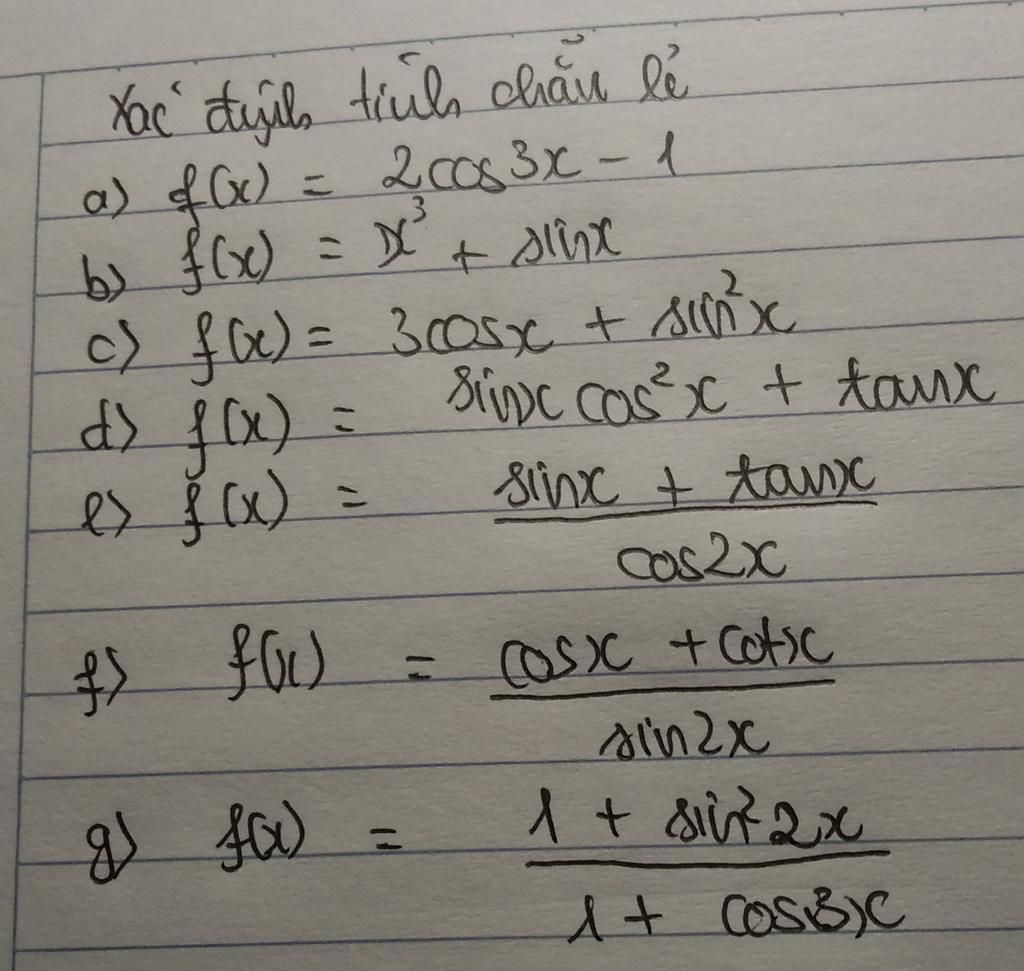 Xác định tính chẵn lẻ
a) f(x) = 2cos3x - 1
b) f(x) = x³ + sinx
c) f(x) = 3cosx + sin²x
d) f(x) = sinx cos²x + tanx
e) f(x) = sinx + tanx
cos2x
f) f(x) = cosx + cotx
sin2x
g) f(x) = 1 + sin²2x
1 + cos3x